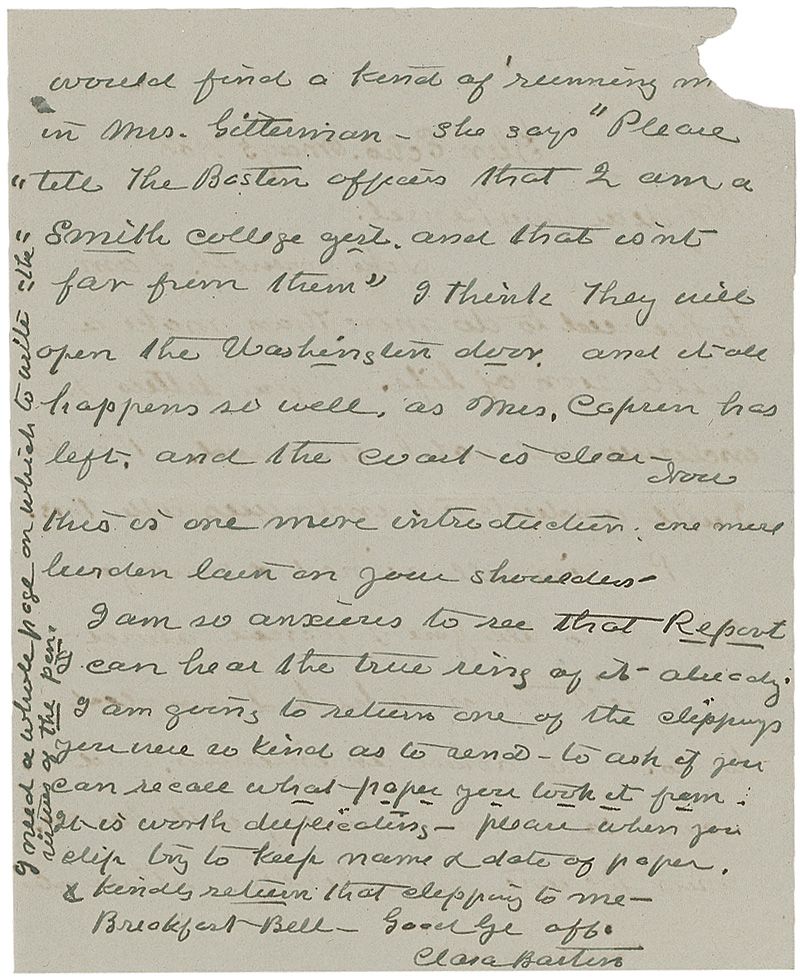 would find a kind of running m
in Mrs. Gitterman - she says "Please
"tell the Boston officers that I am a
Smith college girl. and that isn't
far from them" I think they will
open the Washington door. and it all
happens so well, as Mrs. Capren has
left. and the coast is clear - Now
this is one more introduction. one more
burden lain on your shoulders -
I am so anxious to see that Report
I can hear the true ring of it already.
I am going to return one of the clippings
you were so kind as to send - to ask if you
can recall what paper you took it from.
It is worth duplicating - please when you
clip try to keep name & date of paper.
& kindly return that clipping to me -
Breakfast Bell - Good off.
Clara Barton
I need a whole page on which to write "the"
of the pen.